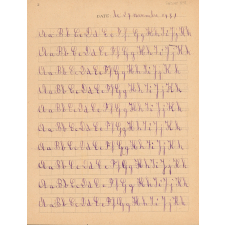 27 novembre 1951
Aa Bb Cc Dd Ee Ff Gg Hh Ii Jj Kk
Aa Bb Cc Dd Ee Ff Gg Hh Ii Jj Kk
Aa Bb Cc Dd Ee Ff Gg Hh Ii Jj Kk
Aa Bb Cc Dd Ee Ff Gg Hh Ii Jj Kk
Aa Bb Cc Dd Ee Ff Gg Hh Ii Jj Kk
Aa Bb Cc Dd Ee Ff Gg Hh Ii Jj Kk
Aa Bb Cc Dd Ee Ff Gg Hh Ii Jj Kk
Aa Bb Cc Dd Ee Ff Gg Hh Ii Jj Kk
Aa Bb Cc Dd Ee Ff Gg Hh Ii Jj Kk